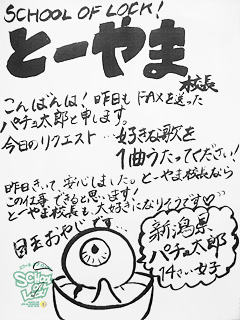 SCHOOL OF LOCK!
とーやま
校長
こんばんは!昨日もFAXを送った
パチョ太郎と申します。
今日のリクエスト…好きな歌を
1曲うたってください!
昨日きいて、安心しました。とーやま校長なら
この仕事できると思います!
とーやま校長も、大好きになりそうです♡
目玉おやじです…
新潟県
パチョ太郎
1才い女子
SCHOOL
OF LOCK!